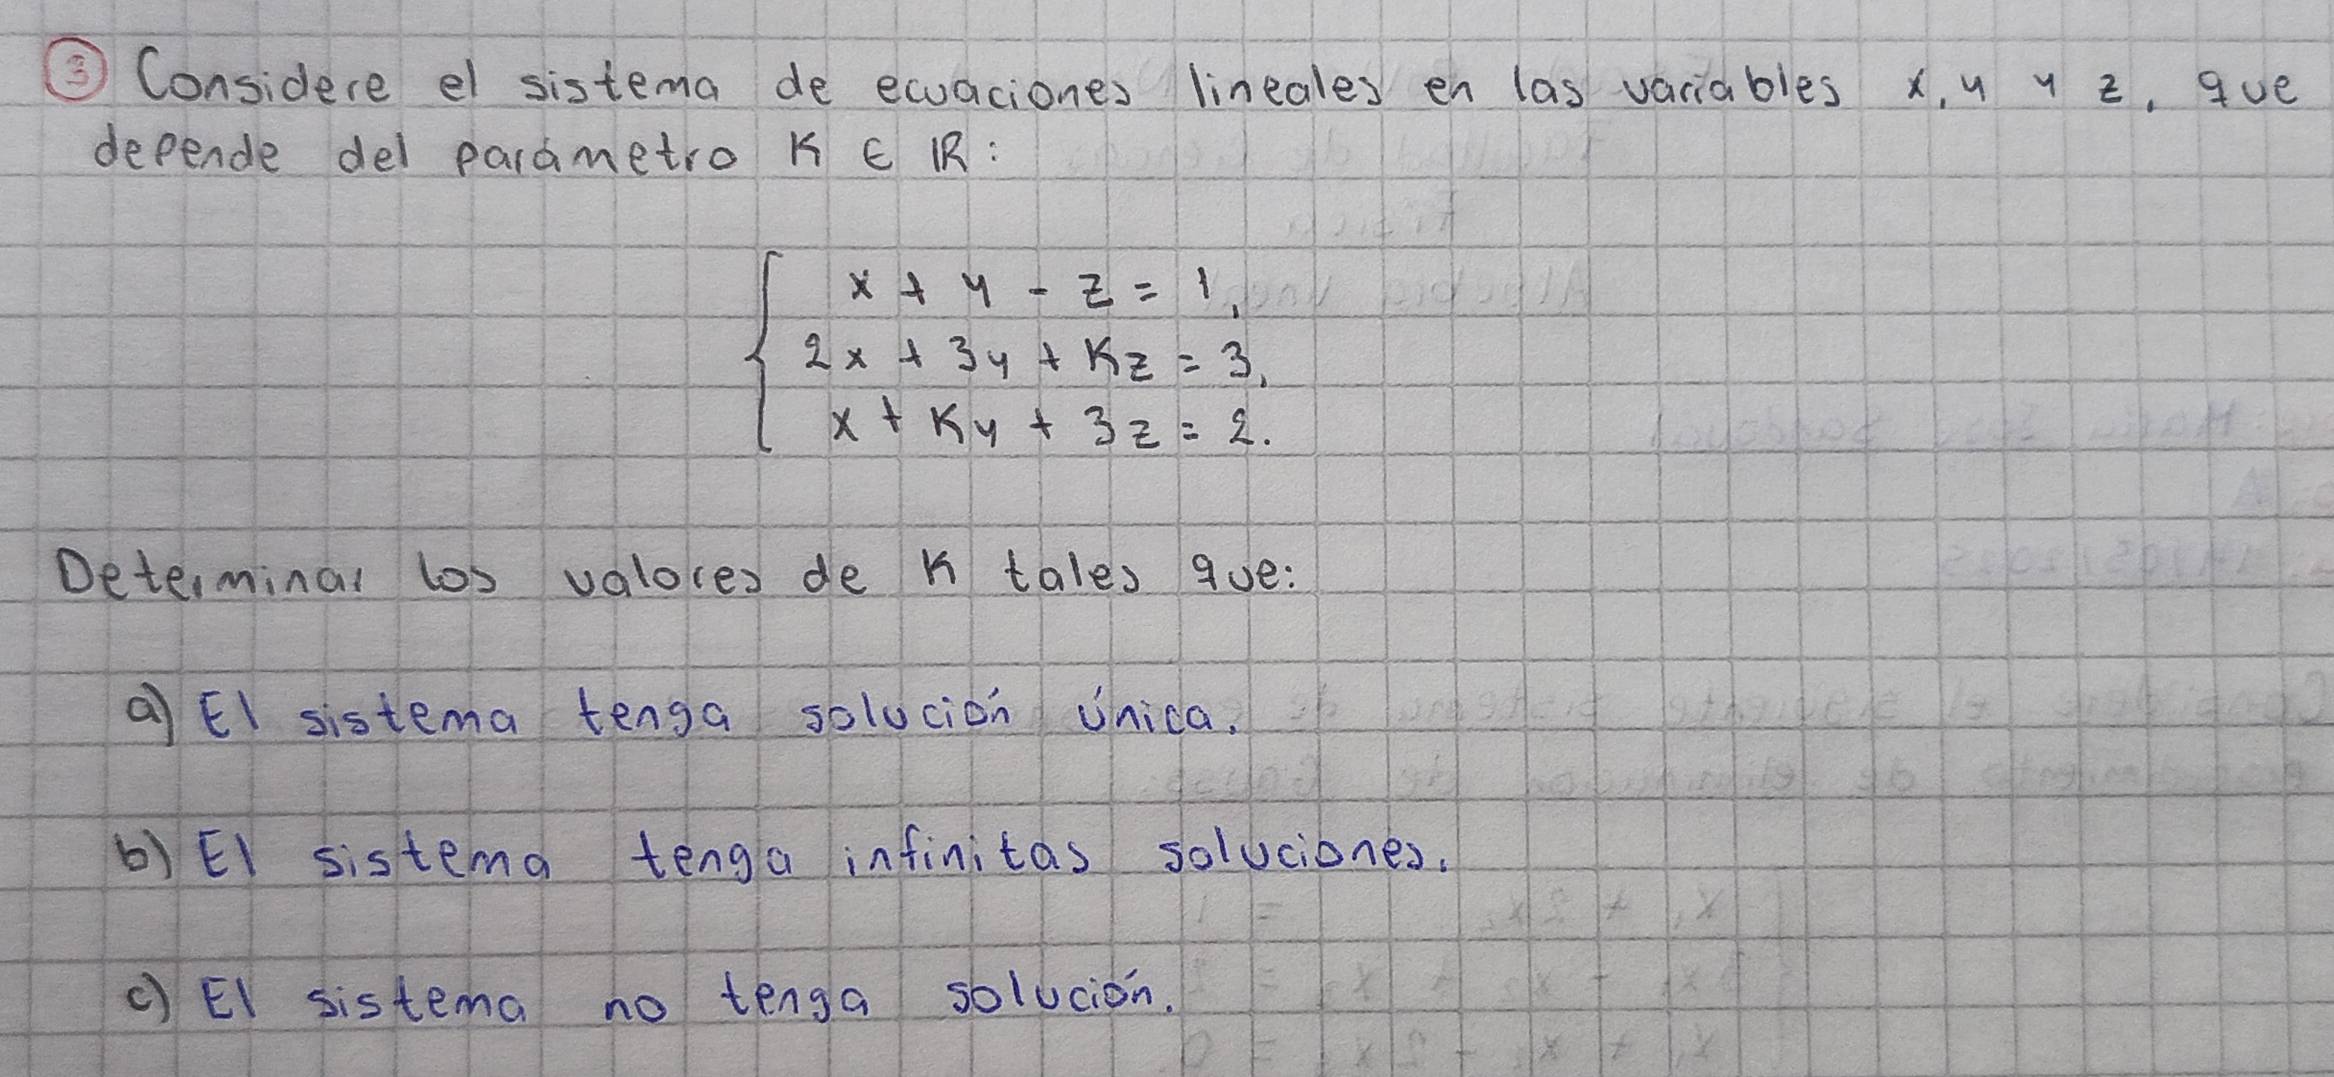 ③ Considere el sistema de ecuaciones lineales en las variables x, y y z, que
depende del parámetro K ∈ ℝ:
x + y - z = 1,
2x + 3y + Kz = 3,
x + Ky + 3z = 2.
Determinar los valores de K tales que:
a) El sistema tenga solución única.
b) El sistema tenga infinitas soluciones.
c) El sistema no tenga solución.